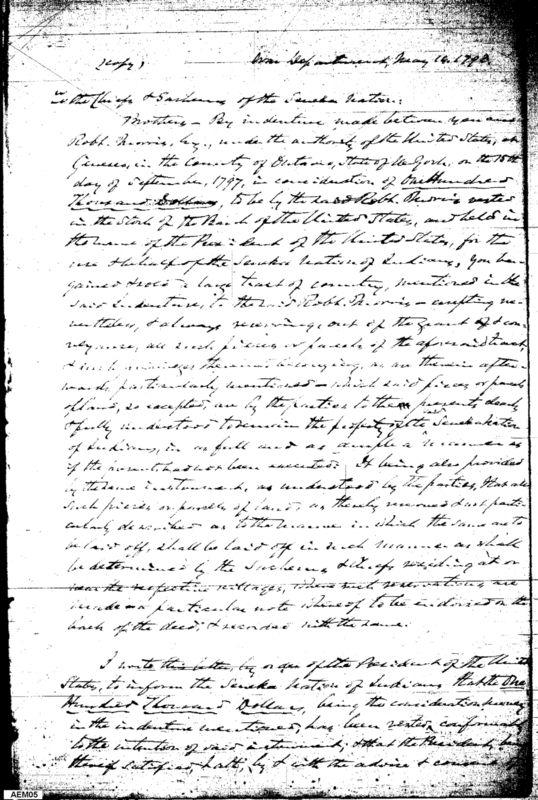 (copy)
War Department, May 14. 1798.
To the Chiefs & Sachems of the Seneka Nation:
Brothers – By indenture made between you and
Robt. Morris, by, under the authority of the United States, at
Geneseo, in the County of Ontario, State of New York, on the 15th
day of September, 1797, in consideration of One Hundred
Thousand Dollars, to be by the said Robt. Morris vested
in the Stock of the Bank of the United States, and held in
the name of the President of the United States, for the
use & behalf of the Seneka Nation of Indians, you bar-
gained & sold a large tract of country, mentioned in the
said indenture, to the said Robt. Morris – excepting ne-
vertheless, & always reserving, out of the grant & con-
veyance, all such pieces or parcels of the aforesaid tract,
& such thereunto belonging, as are therein after-
wards particularly mentioned – which said pieces or parcels
of land, so excepted, are by the parties to these presents, clearly
& fully understood to remain the property of the said Seneka Nation
of Indians, in as full and as ample a manner as
if the presents had not been executed: It being also provided
by the same instrument, as understood by the parties, that all
such pieces or parcels of land, as thereby reserved & not parti-
cularly described as to the manner in which the same are to
be laid off, shall be laid off in such manner as shall
be determined by the Sachems & Chiefs residing at or
near the respective villages, where such reservations are
made – a particular note whereof to be endorsed on the
back of the deed, & recorded with the same.
I write this letter, by order of the President of the United
States, to inform the Seneka Nation of Indians that the One
Hundred Thousand Dollars, being the consideration money
in the indenture mentioned, has been vested, conformably
to the intention of said instrument; & that the President, being
thereof satisfied, hath, by & with the advice & consent of
AEM05